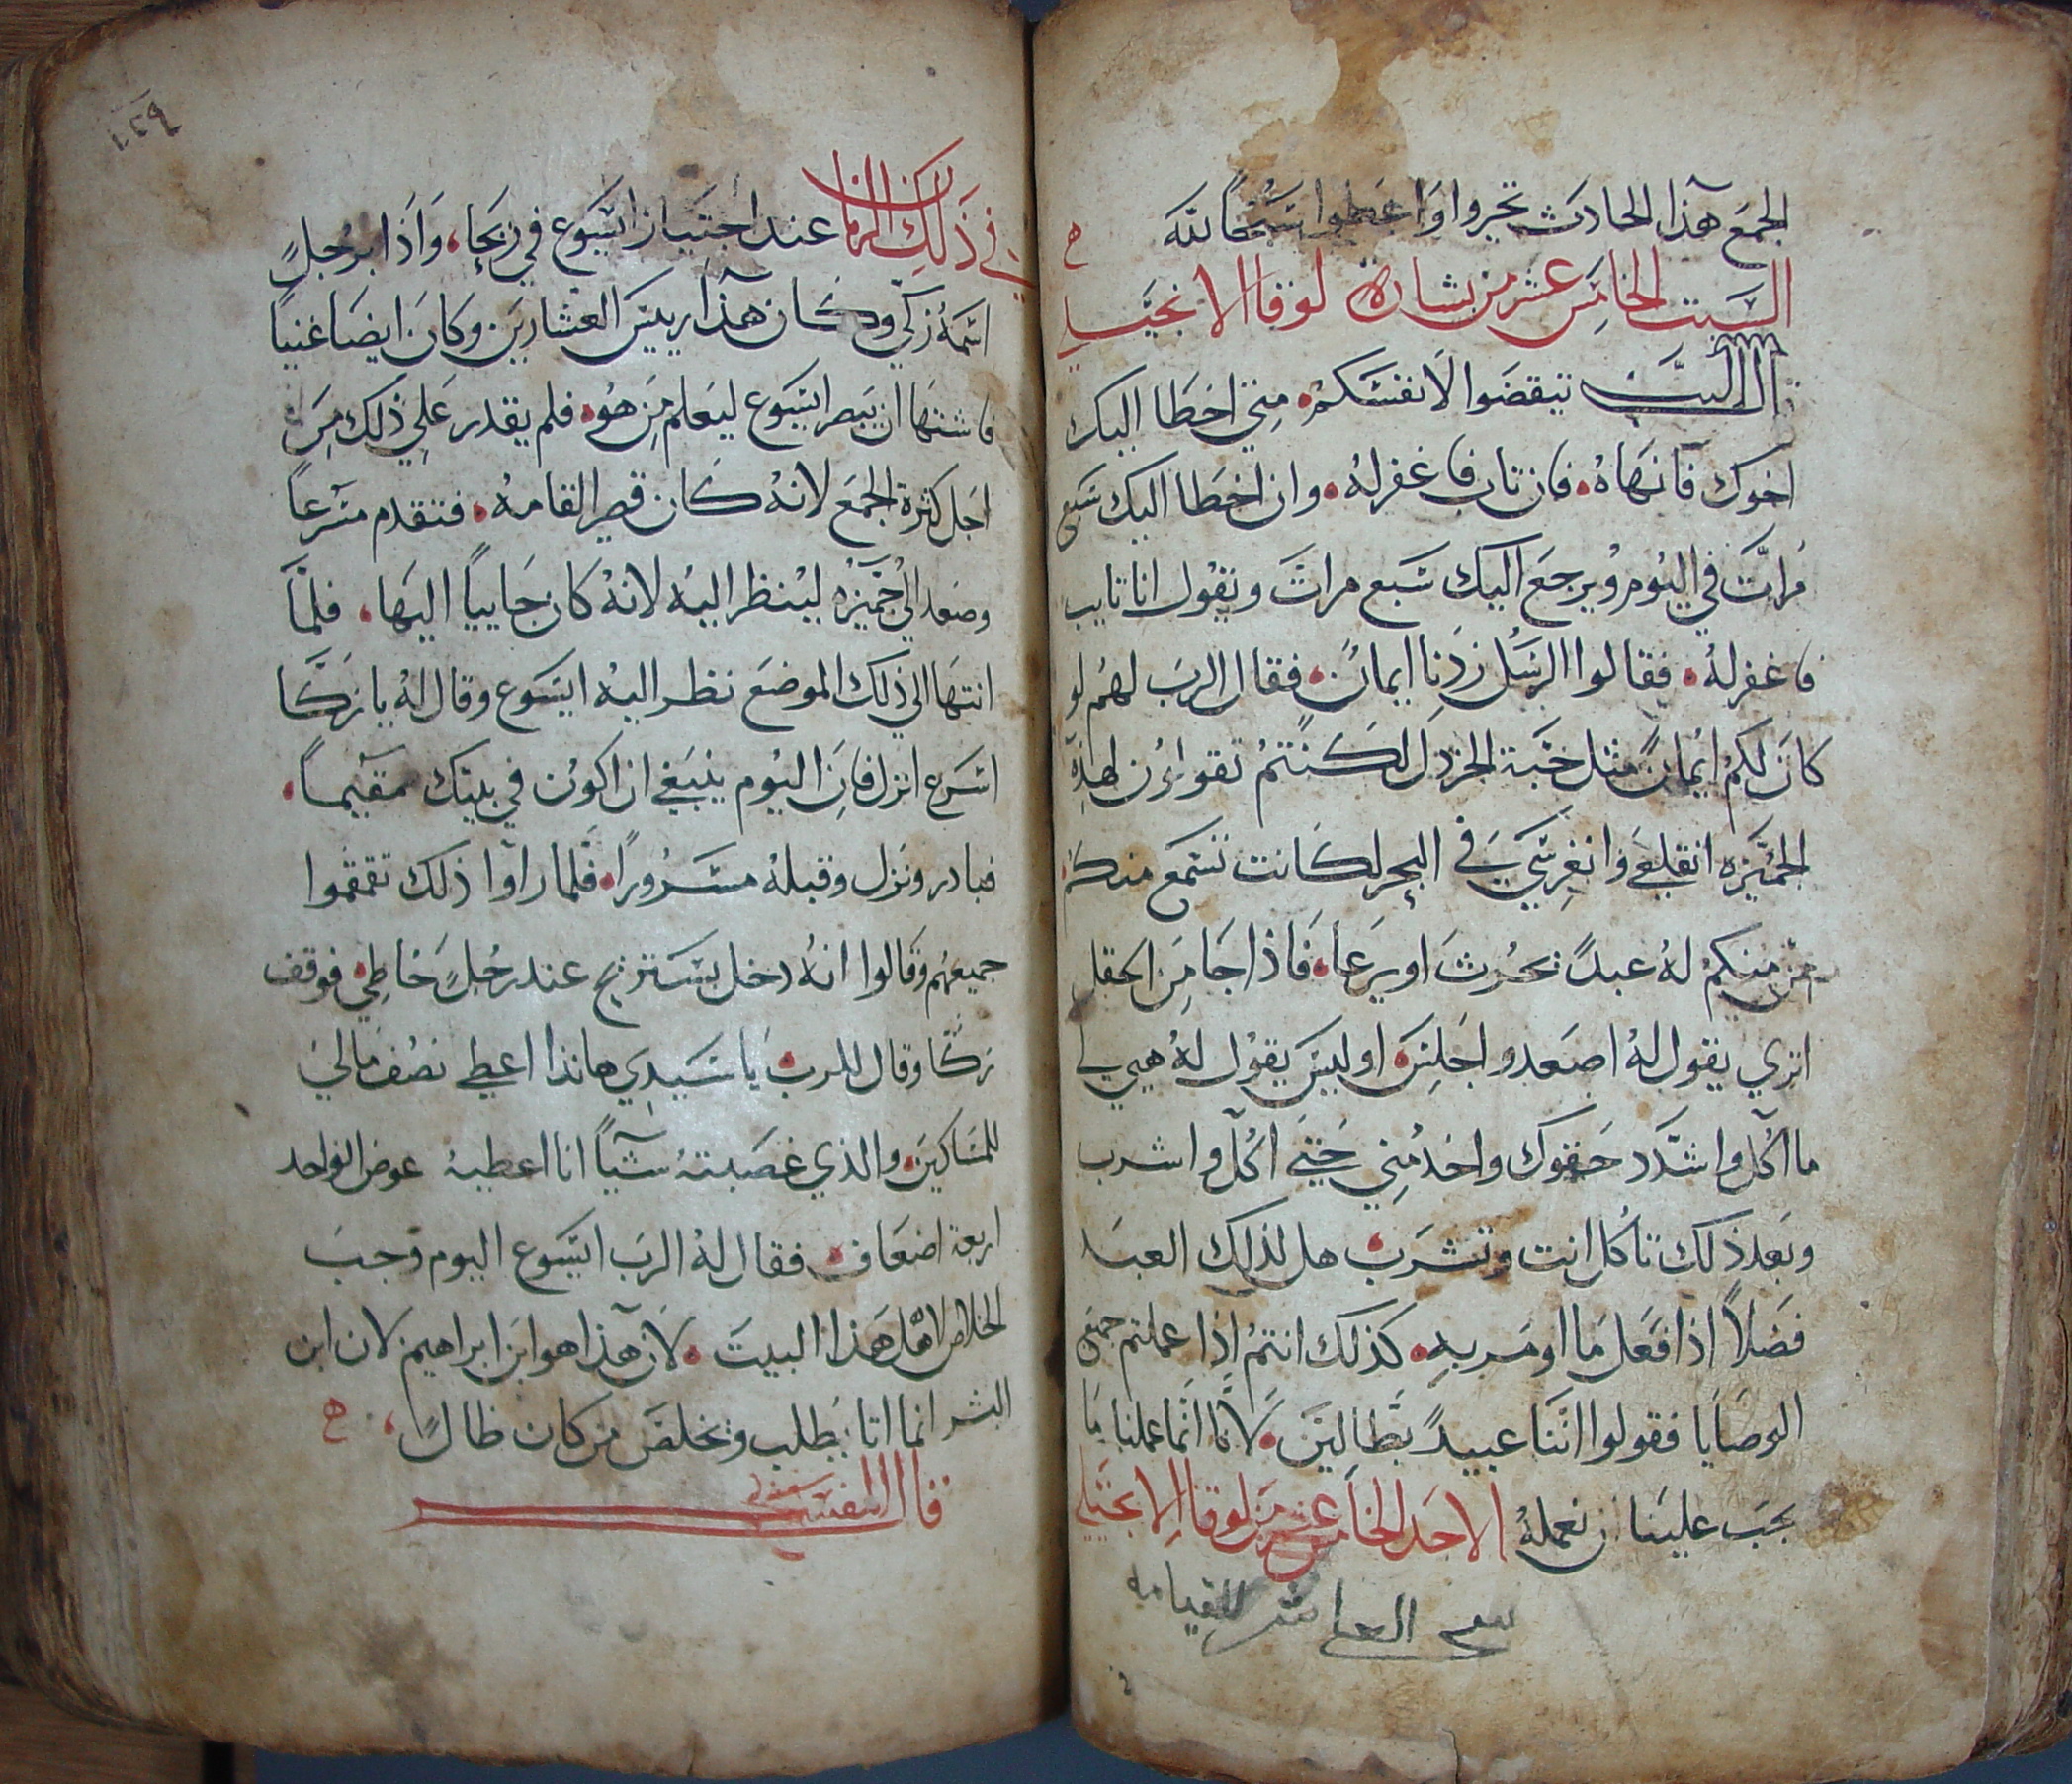 الجمع هذا الحادث تحيروا واعطوا سبحًا لله
السبت الخامس عشر من بشارة لوقا الانجيلي
قال الرب تيقضوا لانفسكم مني اخطا اليك
اخوك فآنهاه فان تاب فاغفر له وان اخطا اليك سبع
مرات في اليوم ويرجع اليك سبع مرات ويقول انا تايب
فاغفر له فقالوا الرسل زدنا ايمان فقال الرب لهم لو
كان لكم ايمان مثل حبة الخردل لكنتم تقولون لهذه
الجميزه انقلعي وانغرسي في البحر لكانت تسمع منكم
من منكم له عبدً يحرث او يرعا فاذا جا من الحقل
اترى يقول له اصعد واجلس او ليس يقول له هيي لي
ما آكل واشدد حقوك واخدمني حتي آكل واشرب
وبعد ذلك تاكل انت وتشرب هل لذلك العبد
فضلاً اذا فعل ما اومر به كذلك انتم اذا عملتم جميع
الوصايا فقولوا اننا عبيدً بطالين لاننا انما عملنا ما
يجب علينا ان نعمله الاحد الخامس عشر من لوقا الانجيلي
سحر العاشر للقيامه
في ذلك الزمان عند اجتياز ايسوع في ريحا واذا برجلٍ
اسمه زكي وكان هذا رييس العشارين وكان ايضا غنياً
فاشتها ان يبصر ايسوع ليعلم من هو فلم يقدر علي ذلك من
اجل كثرة الجمع لانه كان قصير القامه فتقدم مسرعاً
وصعد الي جميزه لينظر اليه لانه كان جاييا اليها فلما
انتها الي ذلك الموضع نظر اليه ايسوع وقال له يا زكا
اسرع انزل فان اليوم ينبغي ان اكون في بيتك مقيماً
فبادر ونزل وقبله مسروراً فلما راوا ذلك تقمقموا
جميعهم وقالوا انه دخل يستريح عند رجلٍ خاطي فوقف
زكا وقال للرب يا سيدي هانذا اعطي نصف مالي
للمساكين والذي غصبته شياً انا اعطيه عوض الواحد
اربعة اضعاف فقال له الرب ايسوع اليوم وجب
الخلاص لاهل هذا البيت لان هذا هو ابن ابراهيم لان ابن
البشر انما اتا يطلب ويخلص من كان ظالً
قال المفسر